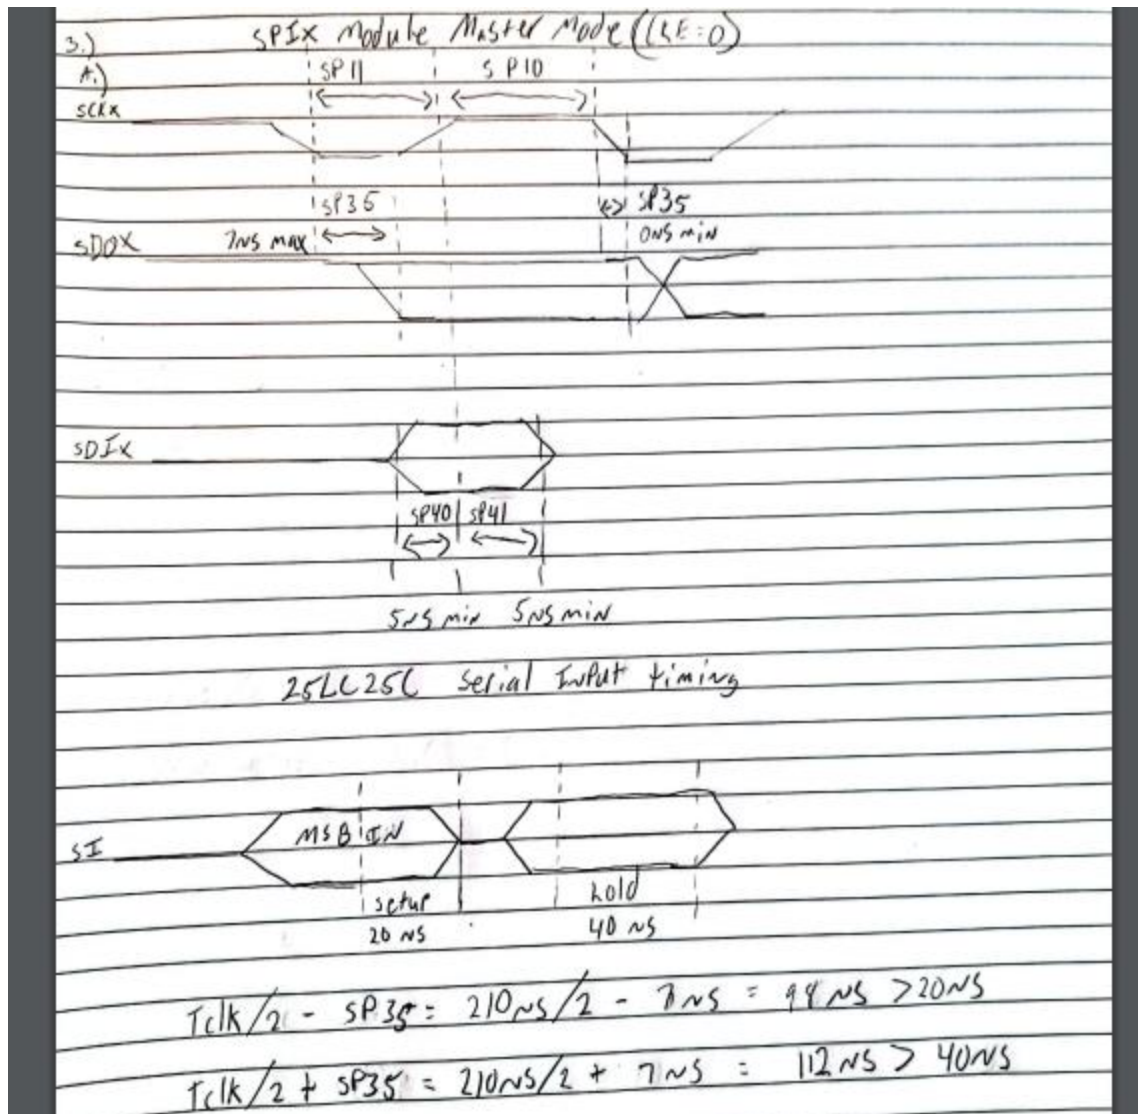 3.) SPIx Module Master Mode (CKE=0)
A.) SP11 SP10
SCKx
SP35 SP35
SDOX 7NS max 0NS min
SDIx
SP40 SP41
5NS min 5NS min
25LC256 Serial Input timing
MSB IN
SI
setup hold
20 NS 40 NS
Tclk/2 - SP35 = 210NS/2 - 7NS = 98 NS >20NS
Tclk/2 + SP35 = 210NS/2 + 7NS = 112 NS > 40NS